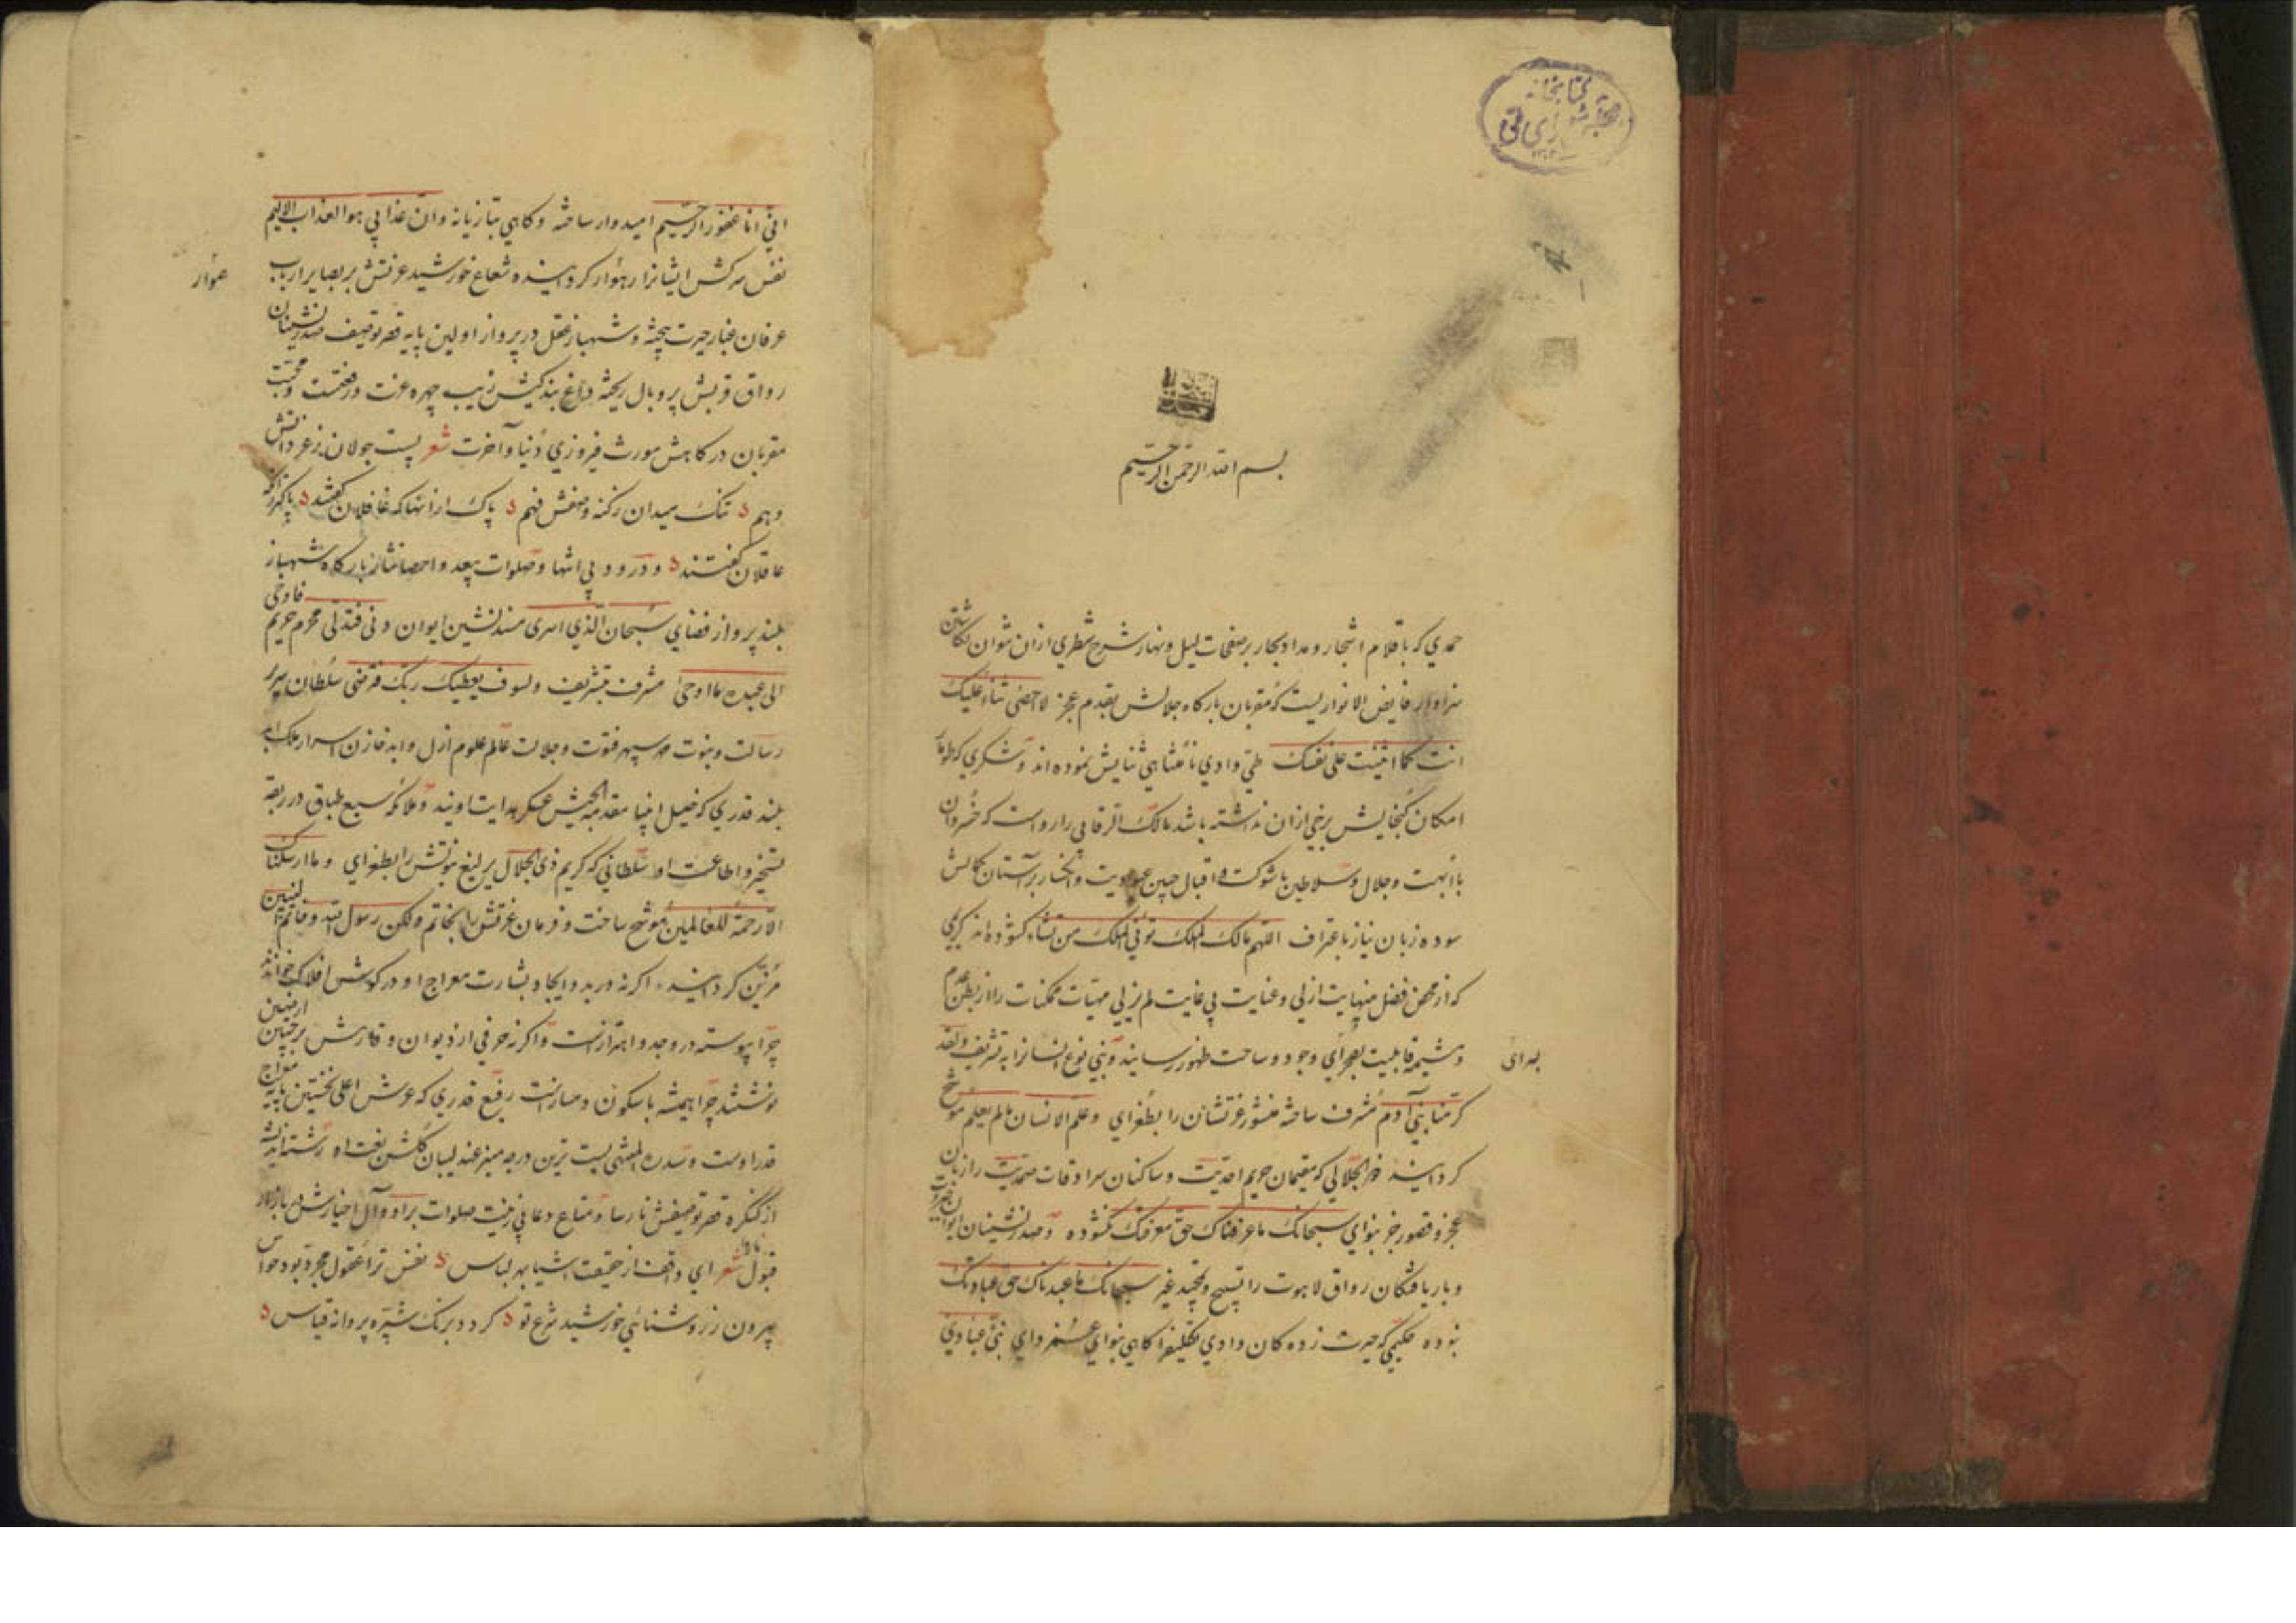 بسم الله الرحمن الرحیم
حمدي که باقلام اشجار و مداد بحار بر صفحات لیل و نهار شرح شطري ازان نتوان نکاشتن
سزاوار فایض الانواریست که مقربان بارکاه جلالش بقدم عجز لا احصی ثناء علیک
انت کما اثنیت علی نفسک طی وادي نامتناهی ثنایش نموده اند و شکري که طومار
امکان کنجایش برخی ازان نداشته باشد مالک الرقابی را رواست که خسروان
با ابهت و جلال و سلاطین با شوکت و اقبال جبین عبودیت و انکسار بر آستان کمالش
سوده زبان نیاز باعتراف اللهم مالک الملک توتی الملک من تشاء کشوده اند کریمی
که از محض فضل بنهایت ازلی و عنایت بی غایت لم یزلی مهیات ممکنات را از بطن عدم
و مشیمه قابلیت بصحرای وجود و ساحت ظهور رسانید و بنی نوع انسانرا به تشریف و لقد
کرمنا بنی آدم مشرف ساخته منشور عزتشان را بطغرای و علم الانسان ما لم یعلم موشح
کردانید ذو الجلالی که مقیمان حریم احدیت و ساکنان سرادقات صمدیت را زبان
عجز و قصور جز بنوای سبحانک ما عرفناک حق معرفتک نکشوده و صدرنشینان ایوان جبروت
و بار یافتکان رواق لاهوت را تسبیح و تمجید غیر سبحانک ما عبدناک حق عبادتک
نبوده حکیمی که حیرت زده کان وادي تکلیفرا کاهی بنوای نبی عبادي
انی انا غفور الرحیم امیدوار ساخته و کاهی بتازیانه و ان عذابی هو العذاب الالیم
نفس سرکش ایشانرا رهوار کردانیده شعاع خورشید عزتش بر بصایر ارباب
هموار
عرفان غبار حیرت بیخته و شهباز عقل در پرواز اولین پایه قصر توصیف صدرنشینان
رواق قربش پر و بال ریخته داغ بندکیش زیب چهره عزت و رفعتست و محبت
مقربان درکاهش مورث فیروزي دنیا و آخرت شعر پست جولان ز عز دانش
وهم تنک میدان ز کنه وصفش فهم پاک ازانها که غافلان کفتند پاکتر زانکه
عاقلان کفتند و درود بی انتها و صلوات بیعد و احصا نثار بارکاه شهباز
بلند پرواز فضاي سبحان الذي اسری مسندنشین ایوان دنی فتدلی محرم حریم فاوحی
الی عبده ما اوحی مشرف بتشریف ولسوف یعطیک ربک فترضی سلطان سریر
رسالت و نبوت مهر سپهر فتوت و جلالت عالم علوم ازل و ابد خازن اسرار ملک
بلند قدري که خیل انبیا مقدمة الجیش عسکر هدایت اویند و ملائکه سبع طباق در ربقه
تسخیر و اطاعت او سلطانی که کریم ذی الجلال یرلیغ نبوتش را بطغرای و ما ارسلناک
الا رحمة للعالمین موشح ساخت و فرمان عزتش را بخاتم ولکن رسول الله و خاتم النبیین
مزین کردانید اکر نه در بدو ایجاد بشارت معراج او در کوش افلاک خواندند
چرا پیوسته در وجد و اهتزازست و اکر نه حرفی از دیوان وقارش بر جبین ارضین
نوشتند چرا همیشه با سکون و رفیع قدري که عرش اعلی نخستین پایه معراج
قدر اوست و سدره المنتهی پست ترین درجه منبر عندلیبان کلشن نعت او رشته اندیشه
از کنکره قصر توصیفش نارسا و متاع دعا بی زینت صلوات بر او و آل اخیارش در بازار
قبول ناروا شعر اي واقف از حقیقت اشیا بهر لباس نفس ترا عقول مجرد بود حواس
بیرون ز روشنائی خورشید شرع تو کردد برنک شپره پروانه قیاس